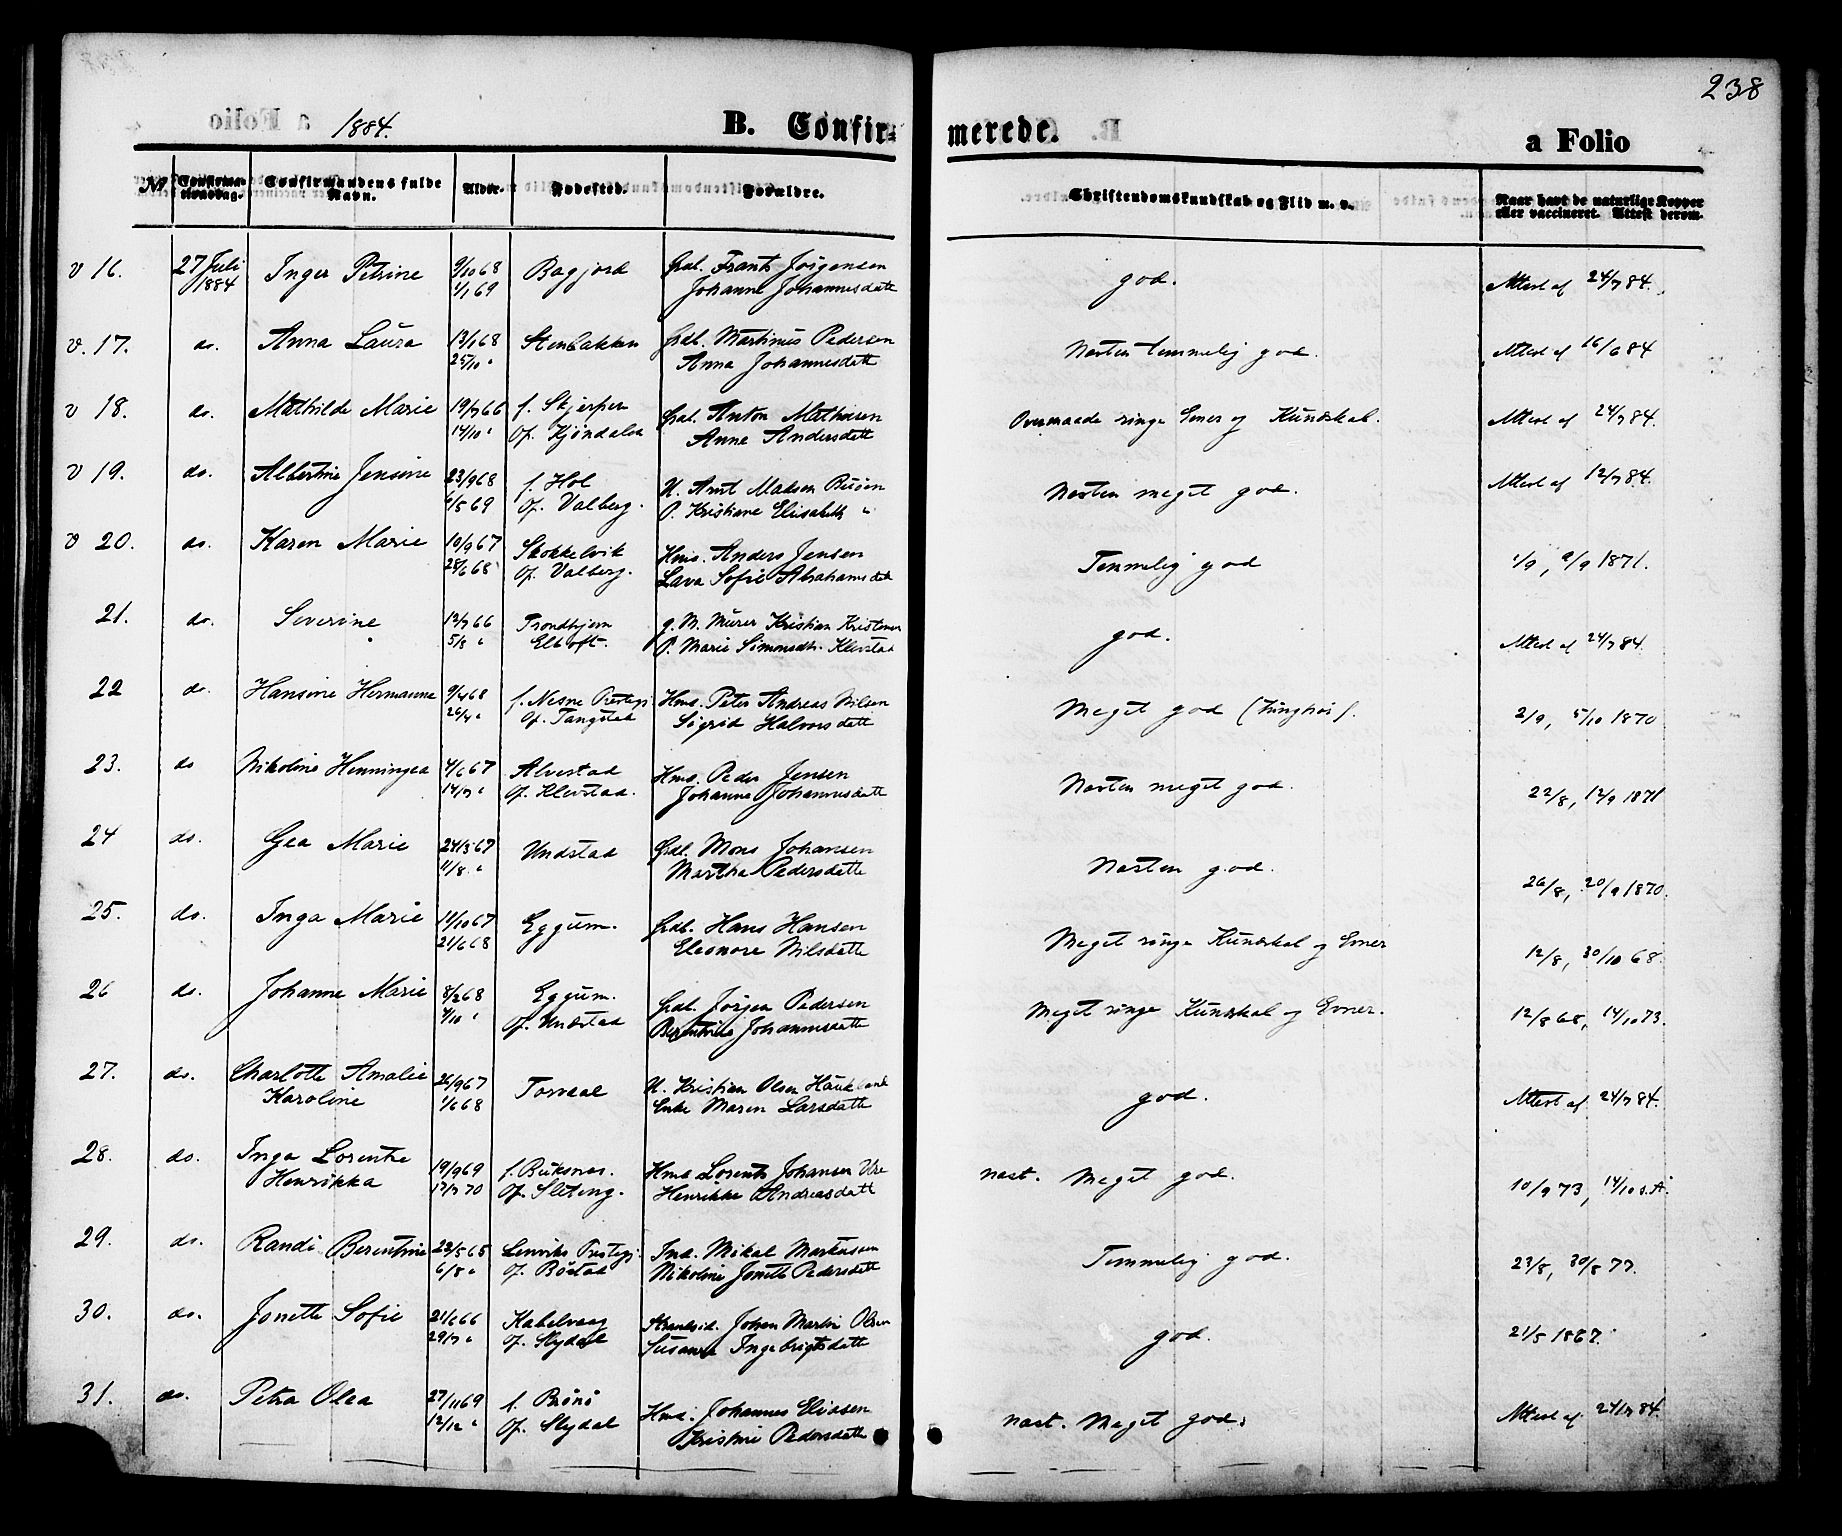 238
1884.
B. Confir- merede.
a Folio
No
Confirma-tionsdag.
Confirmandens fulde Navn.
Alder.
Fødested.
Forældre.
Christendomskundskab og Flid m. v.
Naar havt de naturlige Kopper eller vaccineret. Attest derom.
v 16. 27 Juli 1884 Inger Petrine 9/10 68 1/1 69 Bagjord Gdb. Frants Jørgensen
Johanne Johannesdatt god. Attest af 24/7 84.
v. 17. do. Anna Laura 12/1 68 25/10 " Stenbakken Gdb. Martinus Pedersen
Anna Johannesdatt Næsten temmelig god. Attest af 16/6 84
v 18. do. Mathilde Marie 19/7 66 14/10 " f. Skjerpen
Of. Kjøndalen Gdb. Anton Mathisen
Anne Andersdatt Overmaade ringe Evner og Kundskab. Attest af 24/7 84.
v 19. do. Albertine Jensine 23/9 68 6/5 69 f. Hol
Of. Valberg. U. Arnt Madsen
P. Kristiane Elisabeth " Næsten meget god. Attest af 12/7 84.
v 20. do. Karen Marie 10/9 67 28/6 68 Skokkelvik
Of. Valberg. Hmd. Anders Jensen
Lava Sofie Abrahamsdatt Temmelig god 1/9, 9/9 1871.
21. do. Severine 12/7 66 5/8 " Trondhjem
g. M. Murer Kristian Kristensen
P. Marie Simonsdtr. Klevstad god. Attest af 24/7 84.
22 do. Hansine Hermanna 9/4 68 26/4 " f. Nesne Prestegj
Of. Tangstad Hmd. Peter Andreas Nilsen
Sigrid Halvorsdatt Meget god 2/9, 5/10 1870
23. do Nikoline Henningea 4/6 67 14/7 " Alvestad
Of. Klevstad. Hmd. Peder Jensen
Johanne Johannesdatt Næsten meget god. 22/8, 12/9 1871
24 do. Gea Marie 24/3 67 11/8 " Undstad Gdb. Mons Johansen
Martha Pedersdatt Næsten god. 26/8, 20/9 1870.
25. do. Inga Marie 11/10 67 21/6 68 Eggum. Gdb. Hans Hansen
Eleonore Nilsdatt Meget ringe Kundskab og Evner 12/8, 30/10 68.
26 do. Johanne Marie 8/2 68 4/10 " Eggum.
Of. Undstad Gdb. Jørgen Pedersen
Berentine Johannesdatt Meget ringe Kundskab og Evner. 12/8 68, 14/10 73.
27. do. Charlotte Amalie
Karoline 26/9 67 1/6 68 Torvdal U. Kristian Olsen Haukland
Enke Maren Larsdatt god. Attest af 24/7 84.
28. do. Inga Lorentze
Henrikka 19/9 69 17/7 70 f. Buksnæs.
Of. Sleting. Hmd Lorents Johansen Ure
Henrikke Andreasdatt næst. Meget god. 10/9 73, 14/10 s. A.
29. do. Randi Berentine 23/5 65 6/8 " Lenviks Prestegj.
Of. Bøstad Ind. Mikal Markussen
Nikoline Jonette Pedersdatt Temmelig god. 23/8, 30/8 77.
30. do. Jonette Sofie 21/6 66 29/7 " Kabelvaag
Of. Slydal Strandsid. Johan Martin Olsen
Susanna Ingebrigtsdatt god. 21/5 1867.
31. do. Petra Olea 27/11 69 12/12 " f. Brønø
Of. Slydal Hmd. Johannes Elidsen
Kristine Pedersdatt næst. Meget god. Attest af 24/7 84.